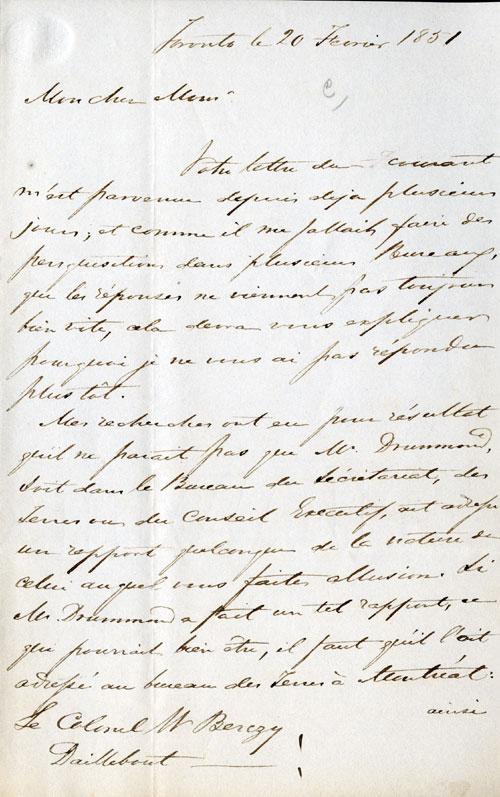 Toronto le 20 Fevrier 1851
Mon cher Monsr
Votre lettre du courant
m'est parvenue depuis deja plusieurs
jours; et comme il me fallait faire des
perquisitions dans plusieurs Bureaux,
que les réponses ne viennent pas toujours
bien vite, cela devra vous expliquer
pourquoi je ne vous ai pas répondu
plus tôt.
Mes recherches ont eu pour résultat
qu'il ne parait pas que Mr. Drummond,
soit dans le Bureau du Sécrétariat, des
Terres ou du Conseil Executif, ait adressé
un rapport quelconque de la nature de
celui auquel vous faites allusion. Si
Mr. Drummond a fait un tel rapport, ce
que pourrait bien être, il faut qu'il l'ait
adressé au bureau des Terres à Montréal:
ainsi
Le Colonel W Berczy
Daillebout